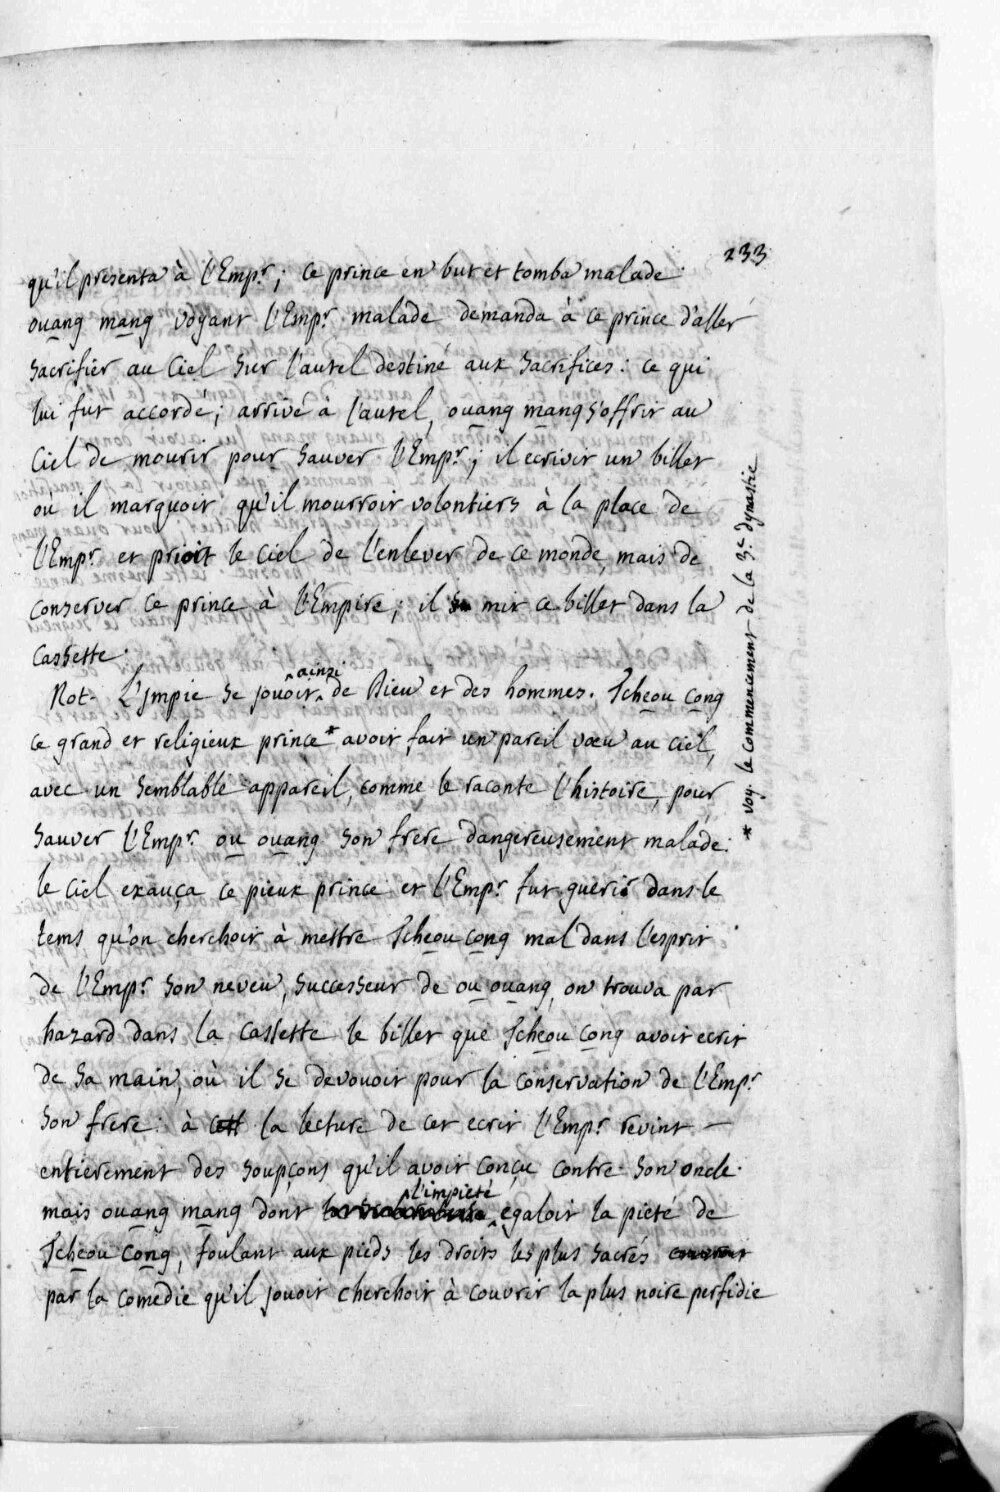 233
qu'il presenta à l'Emp.r; ce prince en but et tomba malade.
ouang mang voyant l'Emp.r malade demanda à ce prince d'aller
sacrifier au Ciel sur l'autel destiné aux sacrifices: ce qui
lui fut accordé; arrivé à l'autel, ouang mang s'offrit au
Ciel de mourir pour sauver l'Emp.r; il ecrivit un billet
ou il marquoit qu'il mourroit volontiers à la place de
l'Emp.r et prioit le Ciel de l'enlever de ce monde, mais de
conserver ce prince à l'Empire; il mit ce billet dans la
cassette.
Not. L'impie se jouoit ainsi de Dieu et des hommes. Tcheou cong
ce grand et religieux prince* avoit fait un pareil vœu au ciel,
avec un semblable appareil, comme le raconte l'histoire, pour
sauver l'Emp.r ou ouang son frere dangereusement malade:
le Ciel exauça ce pieux prince et l'Emp.r fut guerir dans le
tems qu'on cherchoit à mettre Tcheou cong mal dans l'esprit
de l'Emp.r son neveu, successeur de ou ouang, on trouva par
hazard dans la cassette le billet que Tcheou cong avoit ecrit
de sa main, où il se devouoit pour la conservation de l'Emp.r
son frere: à la lecture de cet ecrit l'Emp.r revint
entierement des soupçons qu'il avoit conçu contre son oncle.
mais ouang mang dont l'impieté egaloit la pieté de
Tcheou Cong, foulant aux pieds les droits les plus sacrés
par la comedie qu'il jouoit cherchoit à couvrir la plus noire perfidie
* voy. le commencement de la 3.e dynastie